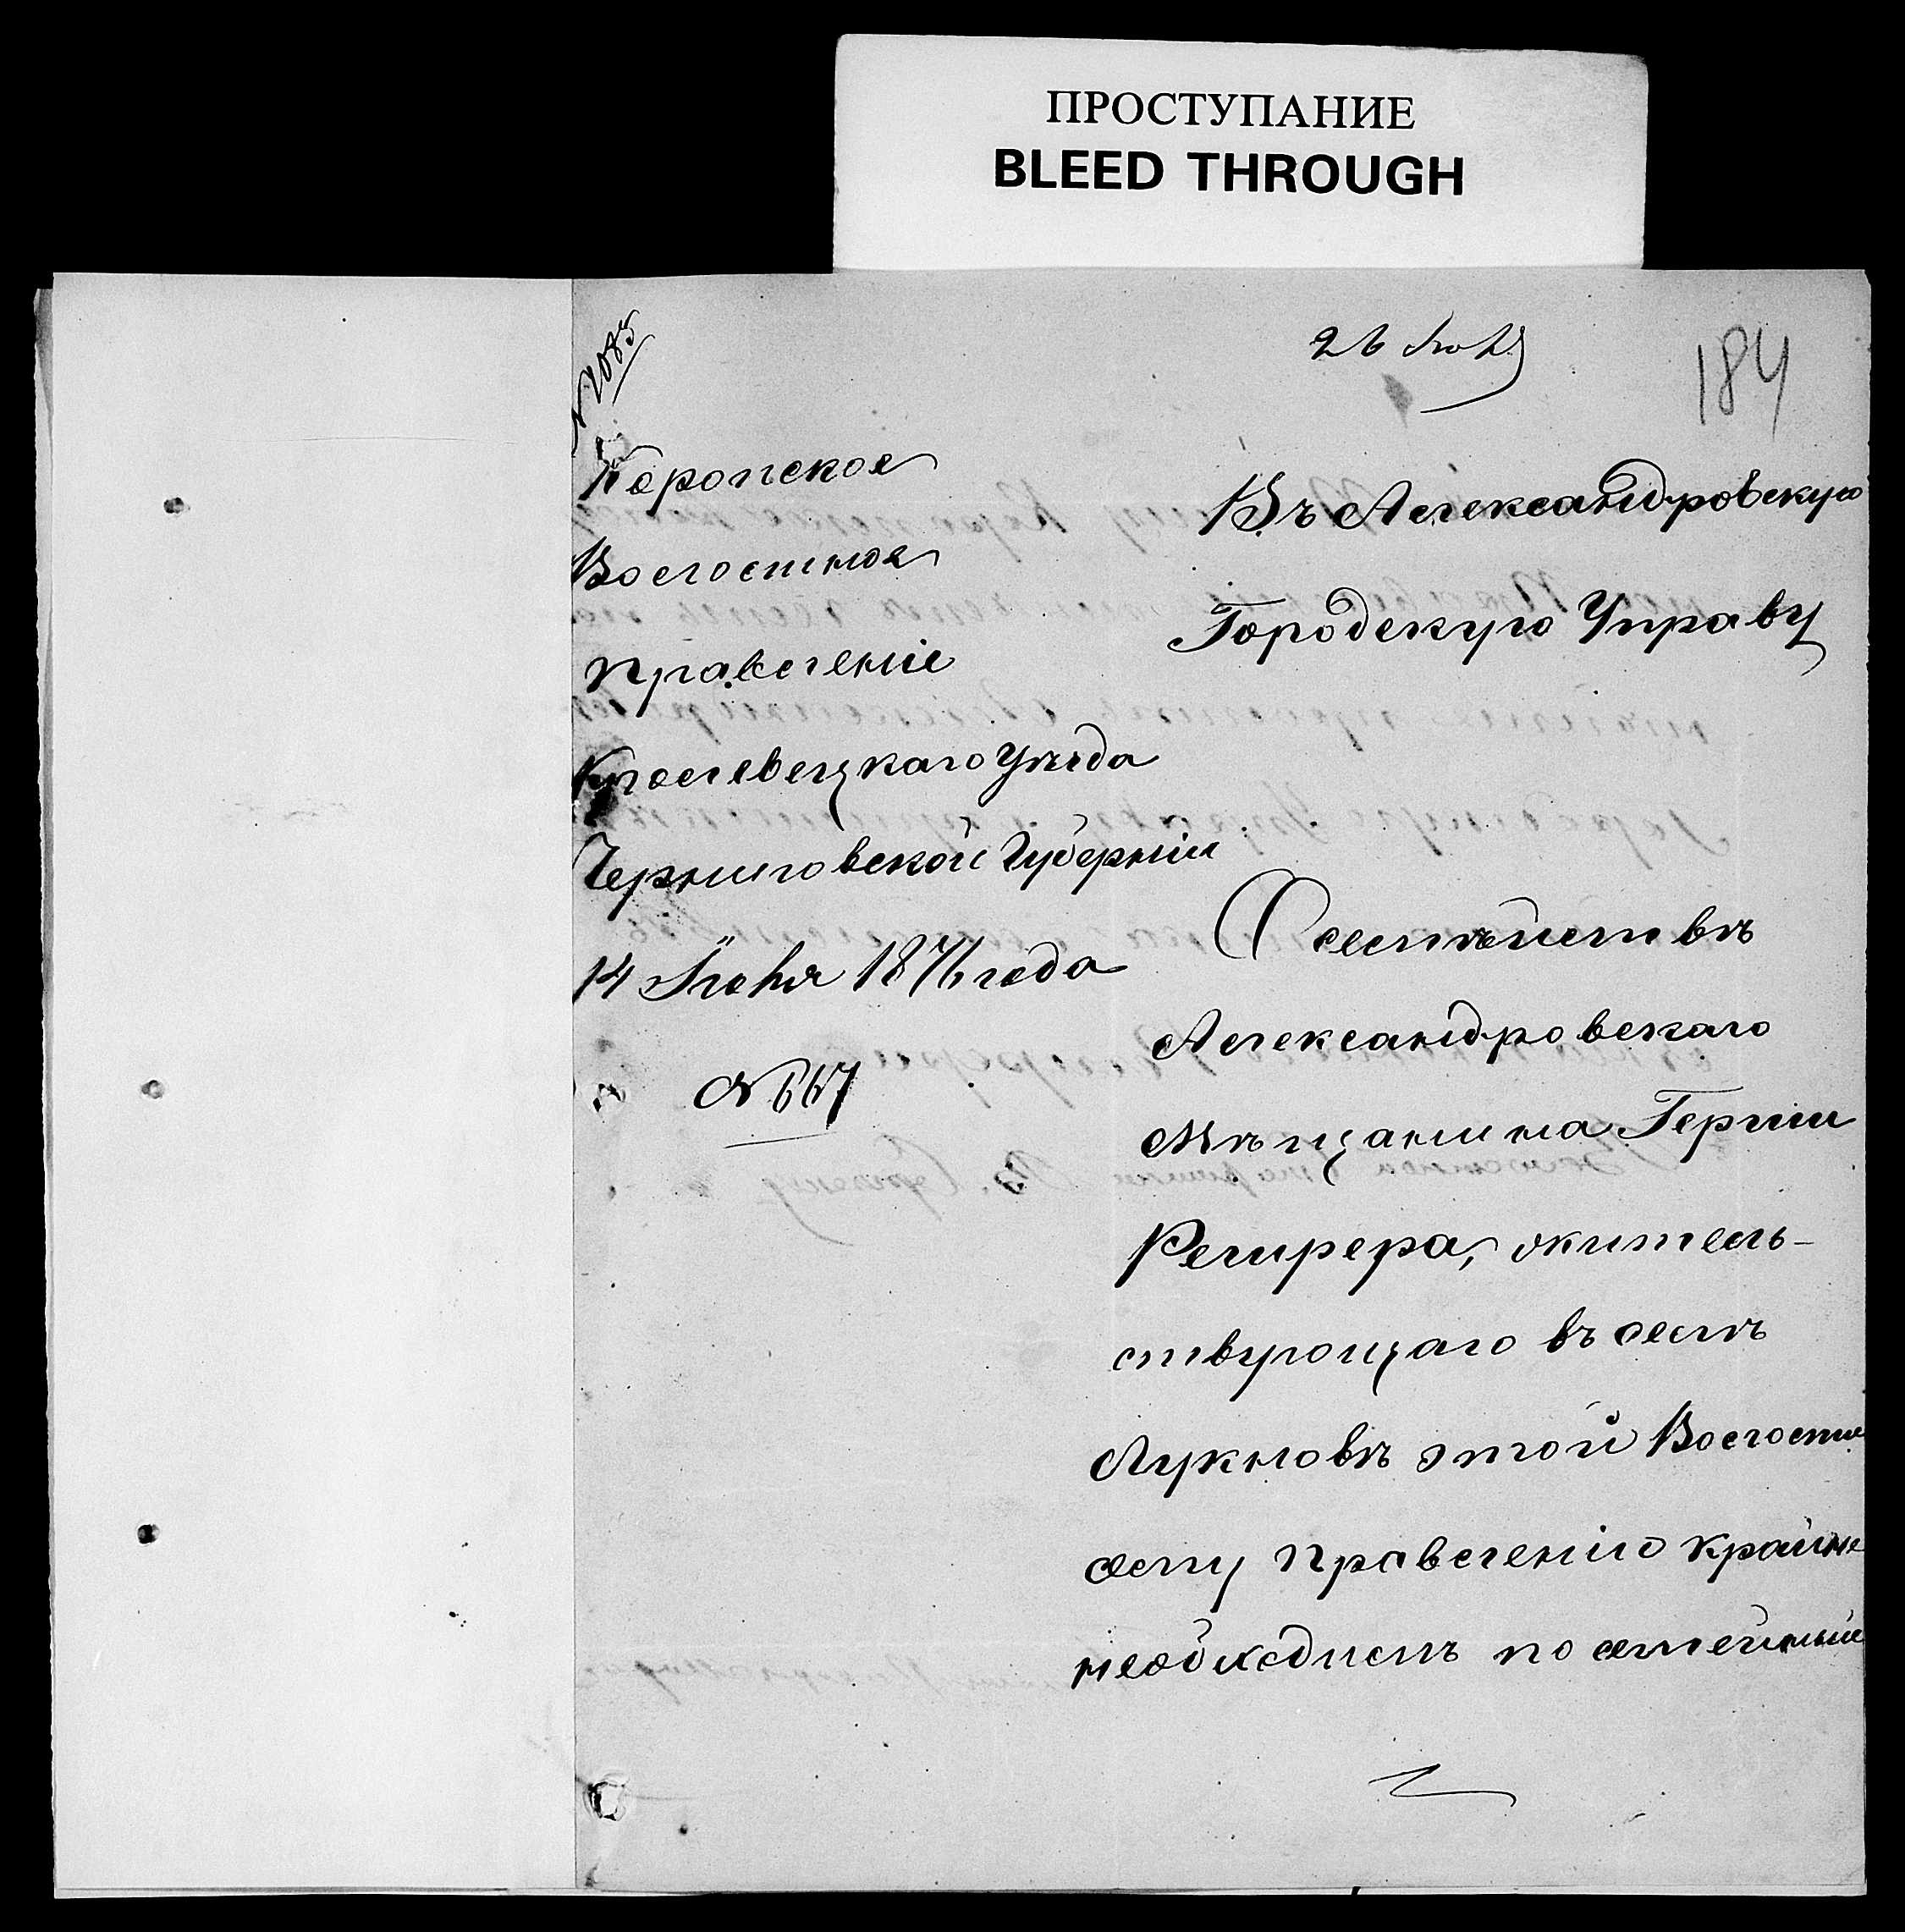 ПРОСТУПАНИЕ
BLEED THROUGH
184
№ 2085
Коропское
Волостное
Правленіе
Кролевецкаго Уѣзда
Черниговской Губерніи
14 Іюня 1876 года
№ 667
Въ Александровскую
Городскую Управу
О семѣйствѣ
Александровскаго
Мѣщанина Герши
житель-
ствующаго въ селѣ
Лукновѣ этой Волости
сему Правленію крайне
необходимъ посемейный